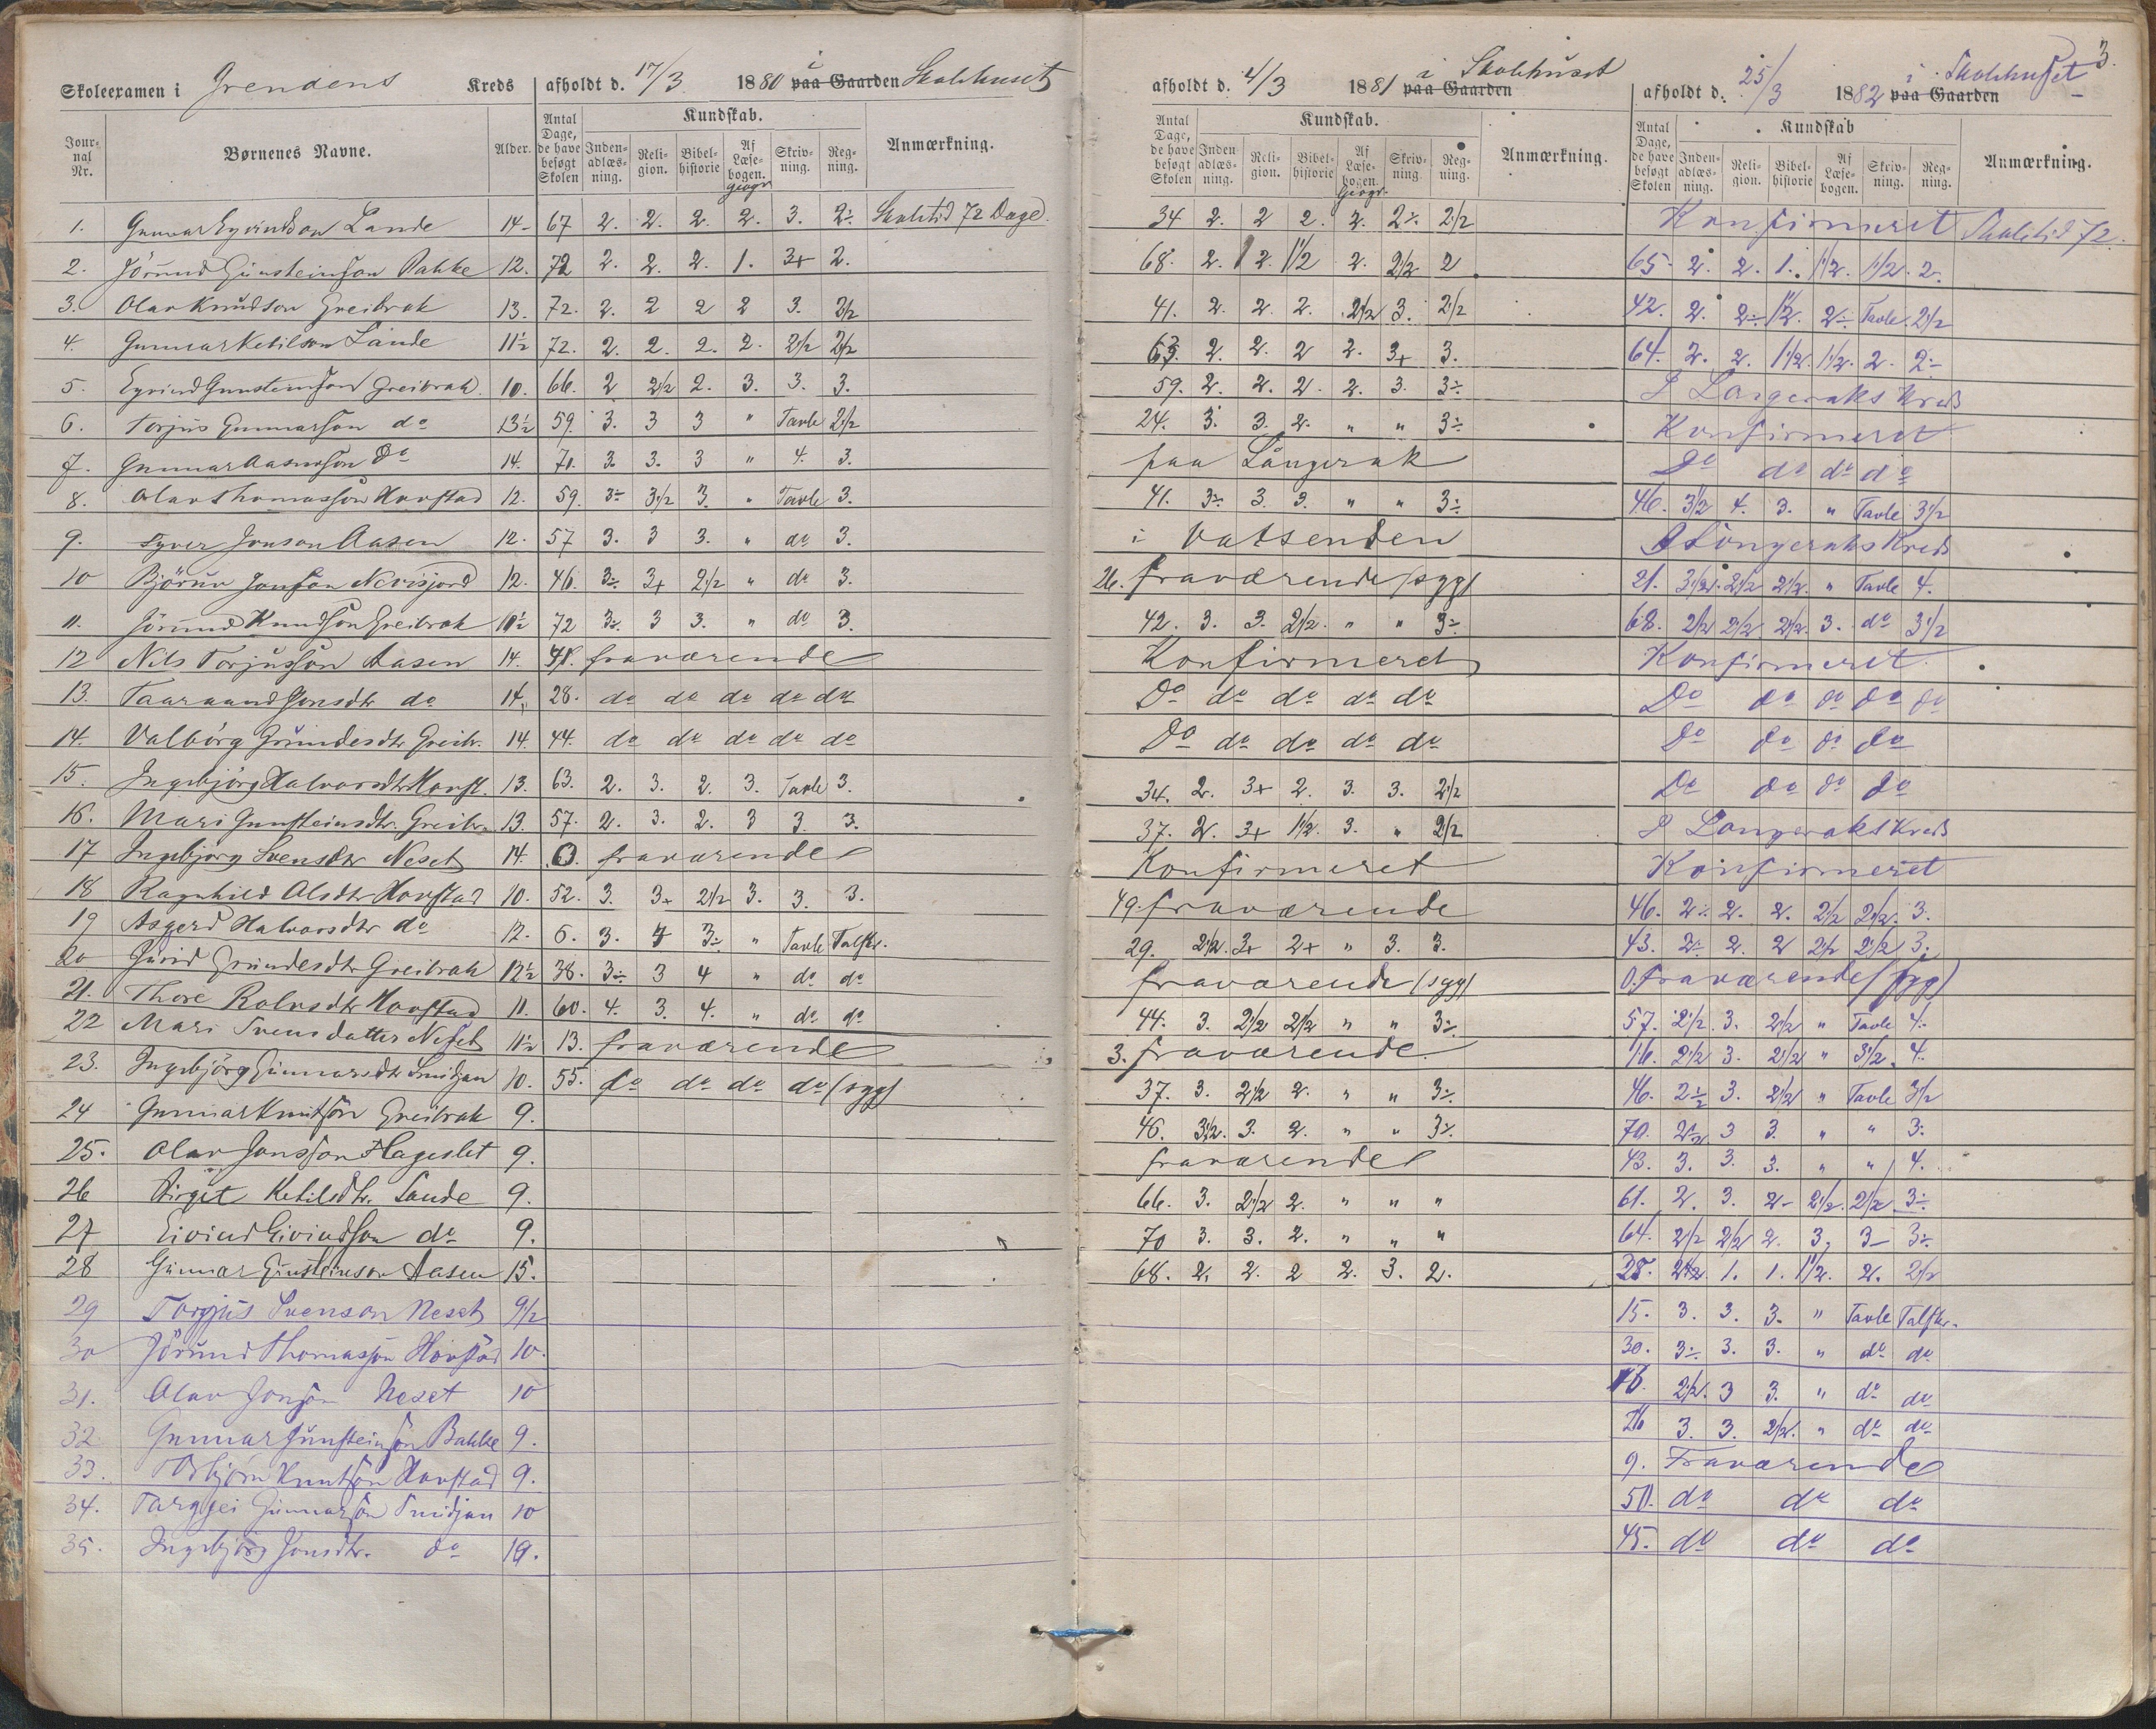 Skoleexamen i Grendens Kreds afholdt d. 17/3 1880 i paa Gaarden Skolehuset
Jour-nal Nr. Børnenes Navne. Alder. Antal Dage, de have besøgt Skolen Kundskab. Inden-adlæs-ning. Reli-gion. Bibel-historie Af Læse-bogen. geogr. Skriv-ning. Reg-ning. Anmærkning.
1. Gunnar Eyvindson Lande 14 67 2. 2. 2. 2. 3. 2÷ Skoletid 72 Dage.
2. Jörund Gunsteinson Bakke 12. 72 2. 2. 2. 1. 3+ 2.
3. Olav Knudson Greibrok 13. 72. 2. 2 2 2 3. 2½
4. Gunnar Ketilson Lande 11½ 72. 2. 2. 2. 2. 2½ 2½
5. Eyvind Gunsteinson Greibrok 10. 66. 2 2½ 2. 3. 3. 3.
6. Torjus Gunnarson do 13½ 59. 3. 3 3 " Tavle 2½
7. Gunnar Aasmorson Do 14. 71. 3. 3. 3 " 4. 3.
8. Olav Thomasson Hovstad 12. 59. 3÷ 3½ 3. " Tavle 3.
9. Syver Jonson Aasen 12. 57 3. 3 3. " do 3.
10 Björnu Jonson Nevisjord 12. 46. 3÷ 3+ 2½ " do 3.
11. Jörund Knudson Greibrok 10½ 72 3÷ 3 3. " do 3.
12 Nils Torjusson Aasen 14. 41. fraværende
13. Taaraand Jonsdtr do 14. 28. do do do do do
14. Valborg Grundesdtr Greibr. 14. 44. do do do do do
15. Ingebjörg Halvorsdtr Hovst. 13. 63. 2. 3. 2. 3. Tavle 3.
16. Mari Gunsteinsdtr. Greibr. 13. 57. 2. 3. 2. 3 3. 3.
17 Ingebjörg Svensdtr Neset 14. 0. fraværende
18 Ragnhild Olsdtr Hovstad 10. 52. 3. 3+ 2½ 3. 3. 3.
19 Asgerd Halvorsdtr do 12. 6. 3. 4 3÷ " Tavle Talskr.
20 Jurid Grundesdtr Greibrok 12½ 38. 3÷ 3 4 " do do
21. Thore Rolvsdtr Hovstad 11. 60. 4. 3. 4. " do do
22 Mari Svensdatter Neset 11½ 13. fraværende
23. Ingebjörg Gunnarsdtr Smidjan 10. 55. do do do do (syg)
24 Gunnar Knutson Greibrok 9.
25. Olav Jonsson Hageslet 9.
26 Birgit Ketilsdtr. Lande 9.
27 Eivind Eivindson do 9.
28 Gunnar Gunsteinson Aasen 15.
29 Torgjus Svenson Neset 9½
30 Jörund Thomasson Hovstad 10.
31. Olav Jonson Neset 10
32 Gunnar Gunsteinson Bakke 9.
33. Osbjörn Knutson Hovstad 9.
34. Targjei Gunnarson Smidjan 10
35. Ingebjörg Jonsdtr. do 10.
afholdt d. 4/3 1881 i paa Gaarden Skolehuset
Antal Dage, de have besøgt Skolen Kundskab. Inden-adlæs-ning. Reli-gion. Bibel-historie Af Læse-bogen. Geogr. Skriv-ning Reg-ning. Anmærkning.
34 2. 2 2. 2. 2÷ 2½
68. 2. 2. 1½ 2. 2½ 2
41. 2. 2. 2. 2½ 3. 2½
63. 2. 2. 2 2. 3+ 3.
59. 2. 2. 2. 2. 3. 3÷
24. 3. 3. 2. " " 3÷
paa Langerak
41. 3÷ 3. 3. " " 3÷
i Vatsenden
26. fraværende (syg)
42. 3. 3. 2½. " " 3÷
Konfirmeret
Do do do do do
Do do do do do
34. 2. 3+ 2. 3. 3. 2½
37. 2. 3+ 1½. 3. " 2½
Konfirmeret
49. fraværende
29. 2½. 3+ 2+ " 3. 3.
fraværende (syg)
44. 3. 2½ 2½ " " 3÷
3. fraværende.
37. 3. 2½ 2. " " 3÷
46. 3½. 3. 2. " " 3÷
fraværende
66. 3. 2½ 2. " " "
70 3. 3. 2. " " "
68. 2. 2. 2 2. 3. 2.
afholdt d. 25/3 1882 i paa Gaarden Skolehuset 3.
Antal Dage, de have besøgt Skolen Kundskab Inden-adlæs-ning. Reli-gion. Bibel-historie Af Læse-bogen. Skriv-ning. Reg-ning. Anmærkning.
Konfirmeret Skoletid 72.
65. 2. 2. 1. 1½. 1½. 2.
42. 2. 2÷ 1½. 2÷ Tavle 2½
64. 2. 2. 1½. 1½. 2. 2÷
I Langeraks Kreds
Konfirmeret
Do do do do
46. 3½ 4. 3. " Tavle 3½
I Langeraks Kreds
21. 3½. 2½ 2½. " Tavle 4.
68. 2½ 2½. 2½. 3. do 3½
Konfirmeret.
Do do do do do
Do do do do
Do do do do
I Langeraks Kreds
Konfirmeret
46. 2÷ 2. 2. 2½ 2½. 3.
43. 2÷ 2. 2 2½ 2½ 3÷
0. fraværende (syg)
57. 2½. 3. 2½ " Tavle 4.
16. 2½ 3. 2½ " 3½. 4.
46. 2÷ 3. 2½ " Tavle 3½
70. 2½ 3 3. " " 3.
43. 3. 3. 3. " " 4.
61. 2. 3. 2- 2½. 2½. 3÷
64. 2½ 2½ 2. 3. 3- 3÷
28. 2½ 1. 1. 1½. 2. 2½
15. 3. 3. 3. " Tavle Talskr.
30. 3÷ 3. 3. " do do
16. 2½. 3 3. " do do
26 3. 3. 2½. " do do
9. Fraværende
50. do do do
45. do do do